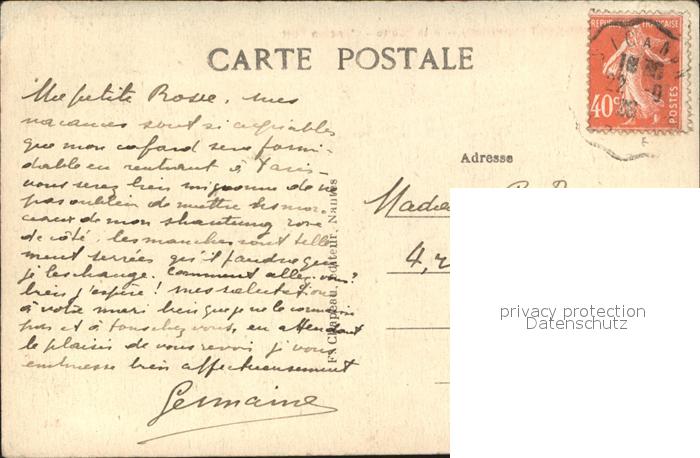 CARTE POSTALE
REPUBLIQUE FRANÇAISE
40c
POSTES
Adresse
Ma petite Rosee, mes
vacances sont si agréables
que mon cafard sera formi-
dable en rentrant à Paris
vous serez bien mignonne de ne
pas oublier de mettre les mor-
ceaux de mon shantung rose
de côté, les manches sont telle-
ment serrées qu'il faudra que
je les change. Comment allez-vous?
bien j'espère! mes salutations
à votre mari bien que je ne le connaisse
pas et à tous chez vous, en attendant
le plaisir de vous revoir je vous
embrasse bien affectueusement
Germaine
F. Chapeau, Editeur, Nantes
Mada
4, r
privacy protection
Datenschutz